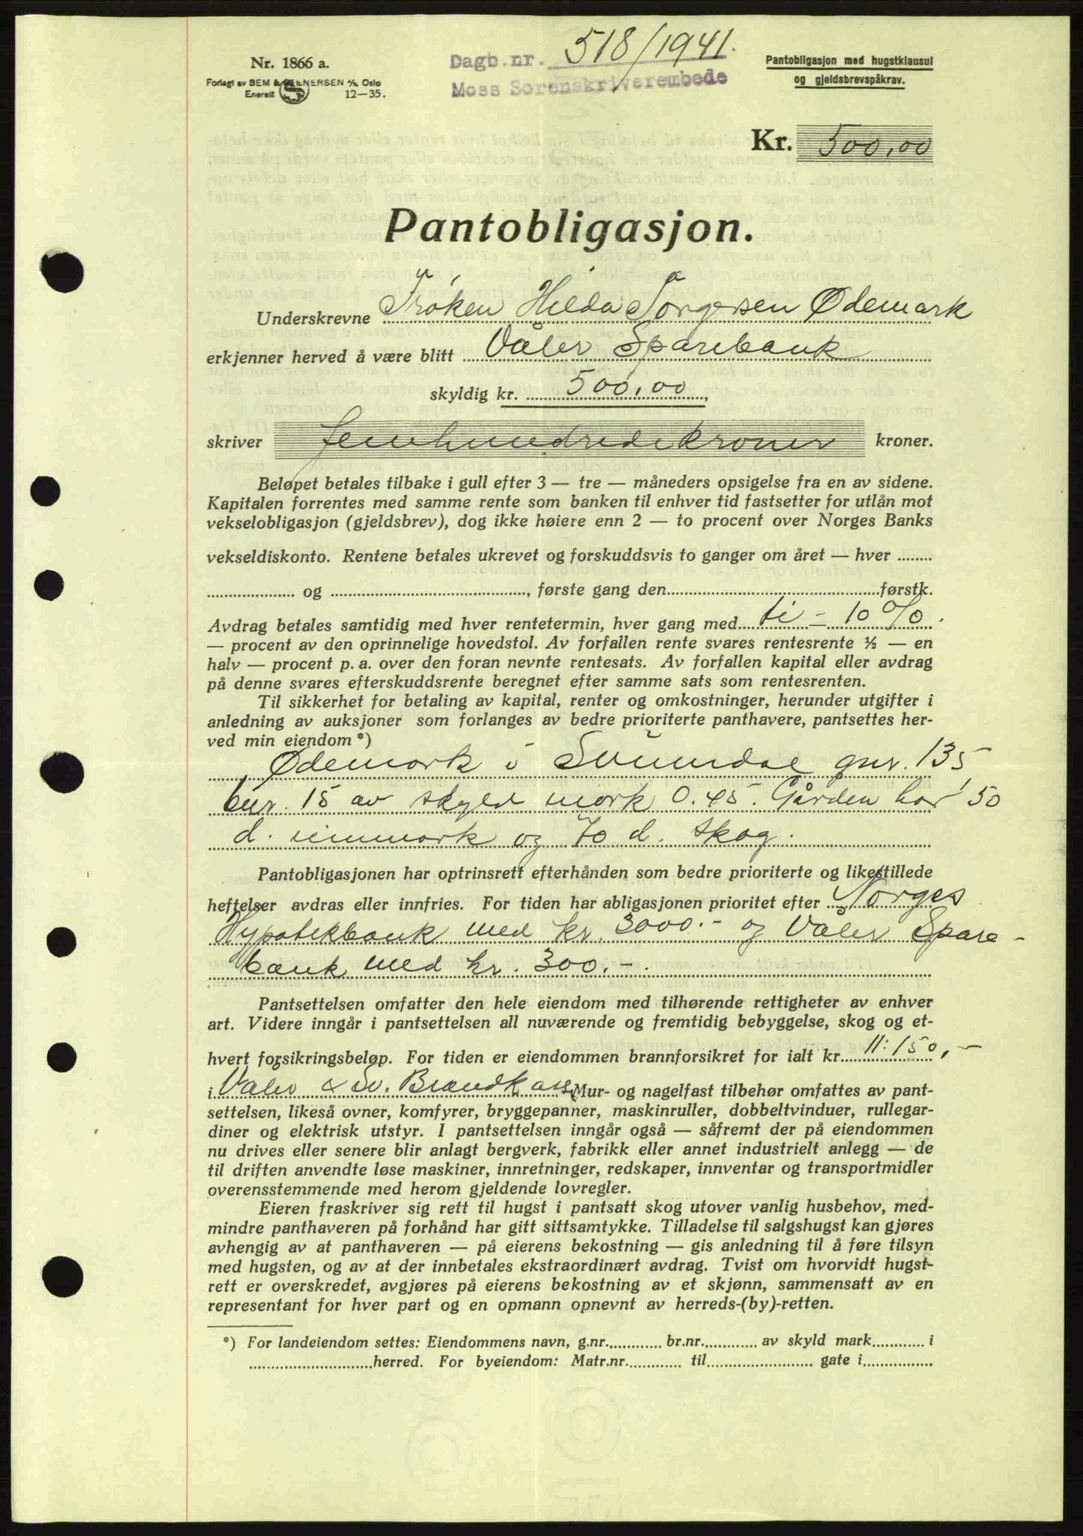 Nr. 1866 a.
Forlagt av SEM & STENERSEN A/S, Oslo
Enerett 12—35.
Dagb.nr. 518/1941.
Moss Sorenskriverembede
Pantobligasjon med hugstklausul
og gjeldsbrevspåkrav.
Kr. 500,00
Pantobligasjon.
Underskrevne Frøken Hilda Torgersen Ødemark
erkjenner herved å være blitt Våler Sparebank
skyldig kr. 500,00,
skriver femhundredekroner kroner.
Beløpet betales tilbake i gull efter 3 — tre — måneders opsigelse fra en av sidene.
Kapitalen forrentes med samme rente som banken til enhver tid fastsetter for utlån mot
vekselobligasjon (gjeldsbrev), dog ikke høiere enn 2 — to procent over Norges Banks
vekseldiskonto. Rentene betales ukrevet og forskuddsvis to ganger om året — hver ........
.................... og ............................................, første gang den................................................førstk.
Avdrag betales samtidig med hver rentetermin, hver gang med ti — 10 %.
— procent av den oprinnelige hovedstol. Av forfallen rente svares rentesrente ½ — en
halv — procent p. a. over den foran nevnte rentesats. Av forfallen kapital eller avdrag
på denne svares efterskuddsrente beregnet efter samme sats som rentesrenten.
Til sikkerhet for betaling av kapital, renter og omkostninger, herunder utgifter i
anledning av auksjoner som forlanges av bedre prioriterte panthavere, pantsettes her-
ved min eiendom *)
Ødemork i Svinndal gnr. 135
bnr. 15 av skyld mork 0.45. Gården har 50
d. innmark og 70 d. skog.
Pantobligasjonen har optrinsrett efterhånden som bedre prioriterte og likestillede
heftelser avdras eller innfries. For tiden har abligasjonen prioritet efter Norges
Hypotekbank med kr. 3000.- og Våler Spare-
bank med kr. 300.-.
Pantsettelsen omfatter den hele eiendom med tilhørende rettigheter av enhver
art. Videre inngår i pantsettelsen all nuværende og fremtidig bebyggelse, skog og et-
hvert forsikringsbeløp. For tiden er eiendommen brannforsikret for ialt kr. 11:150,-
i Våler & Sv. Brandkasse Mur- og nagelfast tilbehør omfattes av pant-
settelsen, likeså ovner, komfyrer, bryggepanner, maskinruller, dobbeltvinduer, rullegar-
diner og elektrisk utstyr. I pantsettelsen inngår også — såfremt der på eiendommen
nu drives eller senere blir anlagt bergverk, fabrikk eller annet industrielt anlegg — de
til driften anvendte løse maskiner, innretninger, redskaper, innventar og transportmidler
overensstemmende med herom gjeldende lovregler.
Eieren fraskriver sig rett til hugst i pantsatt skog utover vanlig husbehov, med-
mindre panthaveren på forhånd har gitt sittsamtykke. Tilladelse til salgshugst kan gjøres
avhengig av at panthaveren — på eierens bekostning — gis anledning til å føre tilsyn
med hugsten, og av at der innbetales ekstraordinært avdrag. Tvist om hvorvidt hugst-
rett er overskredet, avgjøres på eierens bekostning av et skjønn, sammensatt av en
representant for hver part og en opmann opnevnt av herreds-(by)-retten.
*) For landeiendom settes: Eiendommens navn, g.nr............. br.nr............. av skyld mark............ i
............................herred. For byeiendom: Matr.nr............. til........................ gate i................